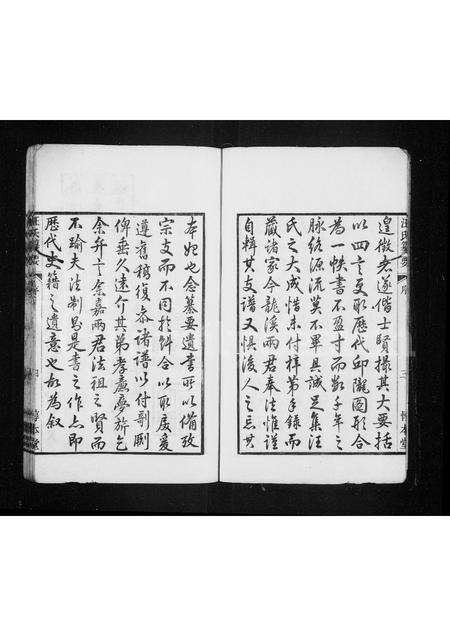 遑徵君遂偕士賢撮其大要括
以四言更取歷代邱隴圖形合
為一帙書不盈寸而斷千年之
脉絡源流莫不畢具誠足集汪
氏之大成惜未付梓第手錄而
藏諸家今龍溪兩君奉法惟謹
自輯其支譜又懼後人之忘其
本妃也念纂要遺書所以備攷
宗支而不同於餅合以取庋爰
遵舊稿復泰諸譜以付剞劂
俾垂久遠介其弟孝彥夢旂乞
余弁言余嘉兩君法祖之賢而
不踰夫法制寫是書之作亦即
歷代史籍之遺意也故為叙